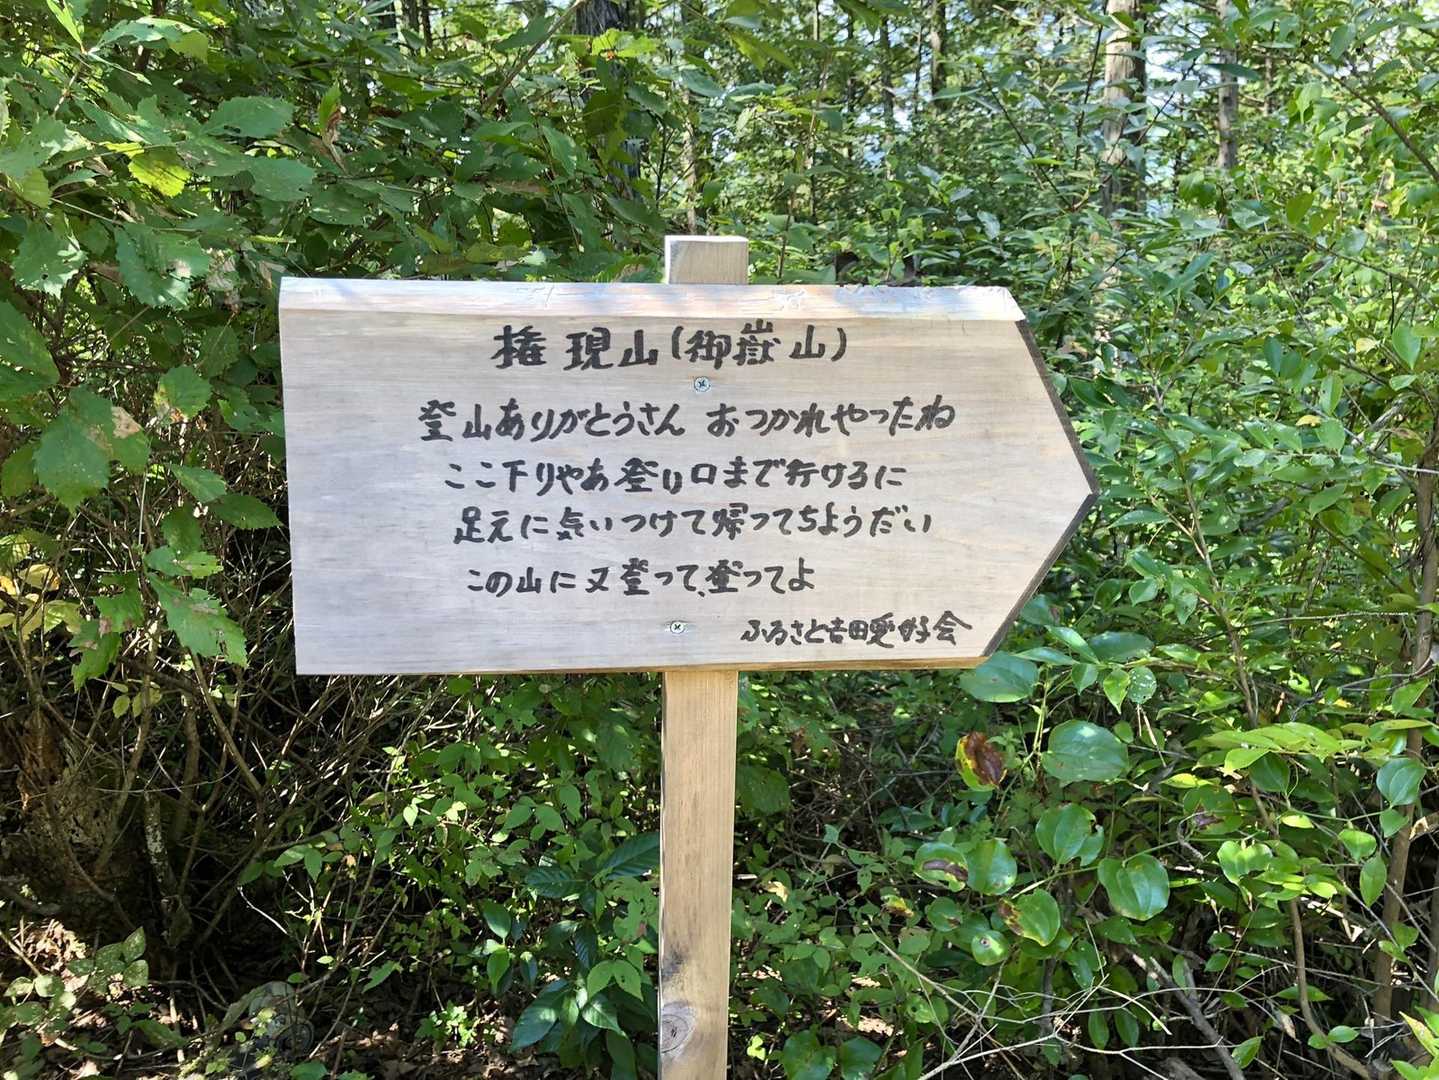 権現山(御嶽山)
登山ありがとうさん おつかれやったね
ここ下りやあ登り口まで行けるに
足元に気いつけて帰ってちようだい
この山に又登って、登ってよ
ふるさと吉田愛好会